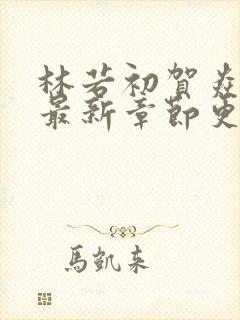 林若初賀焱
最新章節更
馬凱來